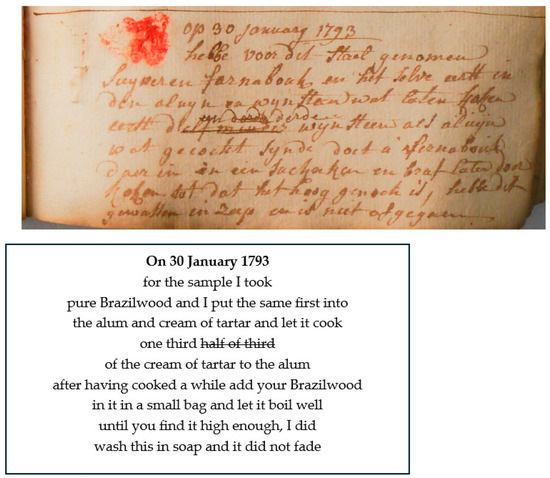 op 30 January 1793
hebbe voor dit staal genomen
suyveren farnabouk en het selve in
den aluyn en wynsteen wat laten koken
derde
wynsteen als aluyn
wat gecockt synde doet u fernabouk
daer in in een en braf laten door
koken tot dat het hoog genoch is, hebbe dit
gewassen in Zeep en is niet afgegaen
On 30 January 1793
for the sample I took
pure Brazilwood and I put the same first into
the alum and cream of tartar and let it cook
one third half of third
of the cream of tartar to the alum
after having cooked a while add your Brazilwood
in it in a small bag and let it boil well
until you find it high enough, I did
wash this in soap and it did not fade